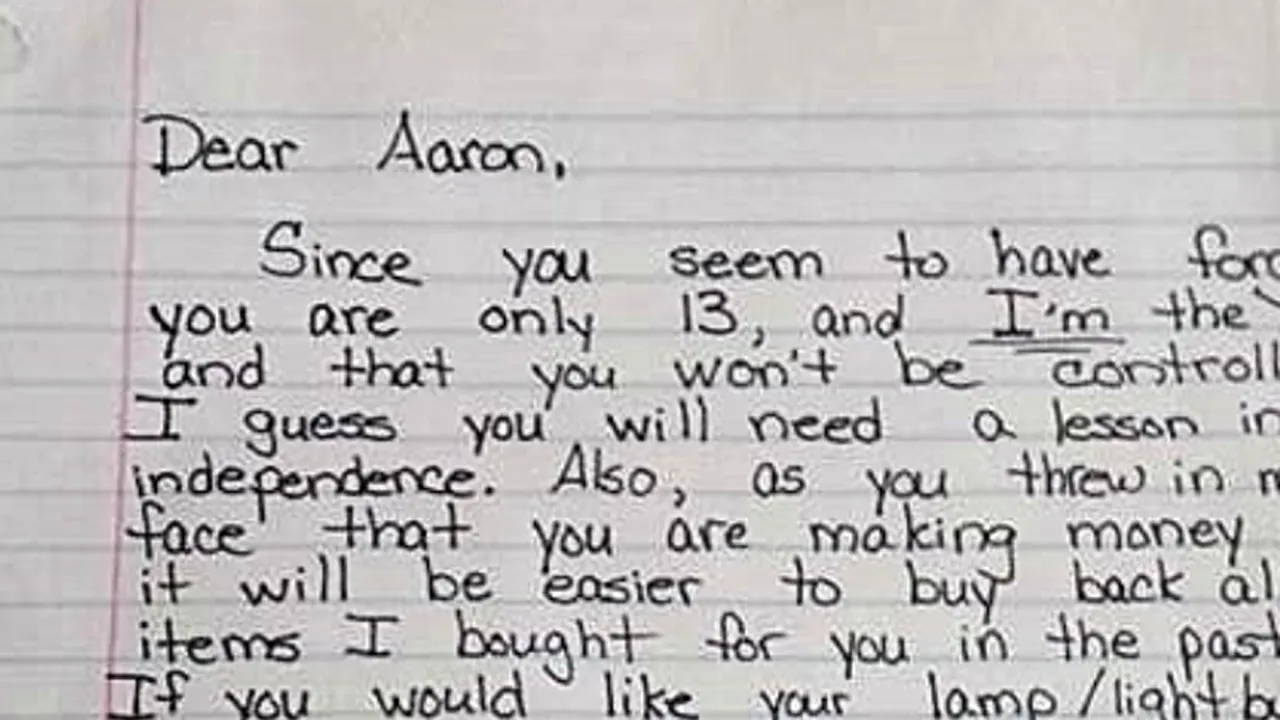 Dear Aaron,
Since you seem to have
you are only 13, and I'm the
and that you won't be
I guess you will need a lesson in
independence. Also, as you threw in
face that you are making money
it will be easier to buy back
items I bought for you in the past
If you would like your